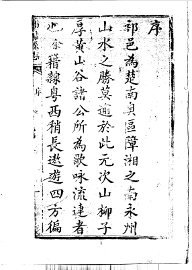 序
祁邑為楚南奧區障湘之南永州
山水之勝莫逾於此元次山柳子
厚黃山谷諸公所為歌咏流連者
也余籍隸粵西稍長遨遊四方徧